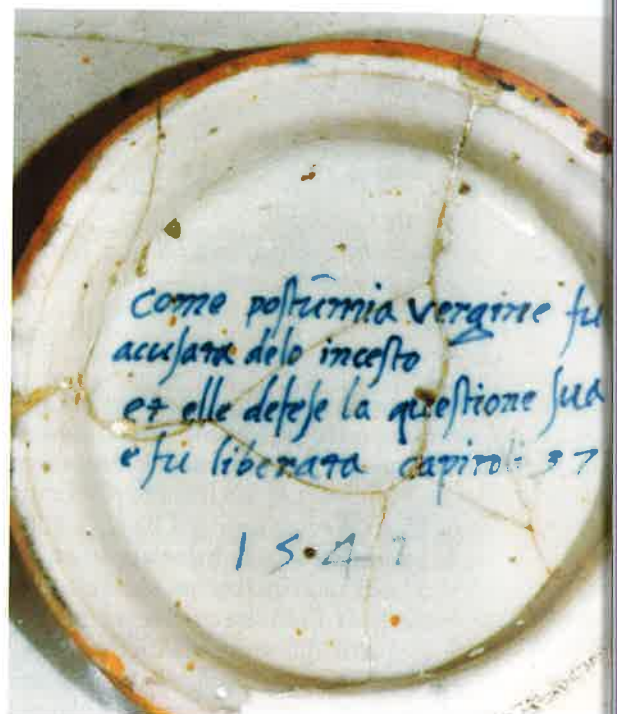 Come postumia vergine fu
acusata delo incesto
et elle defese la questione sua
e fu liberata capitol: 37